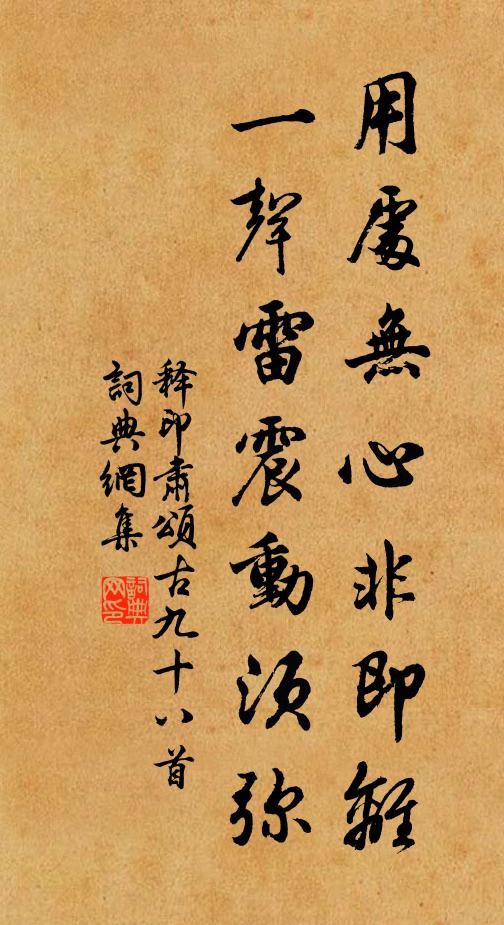 用處無心非即離
一聲雷震動須弥
释印肅頌古九十八首
詞典網集
詞典
网印